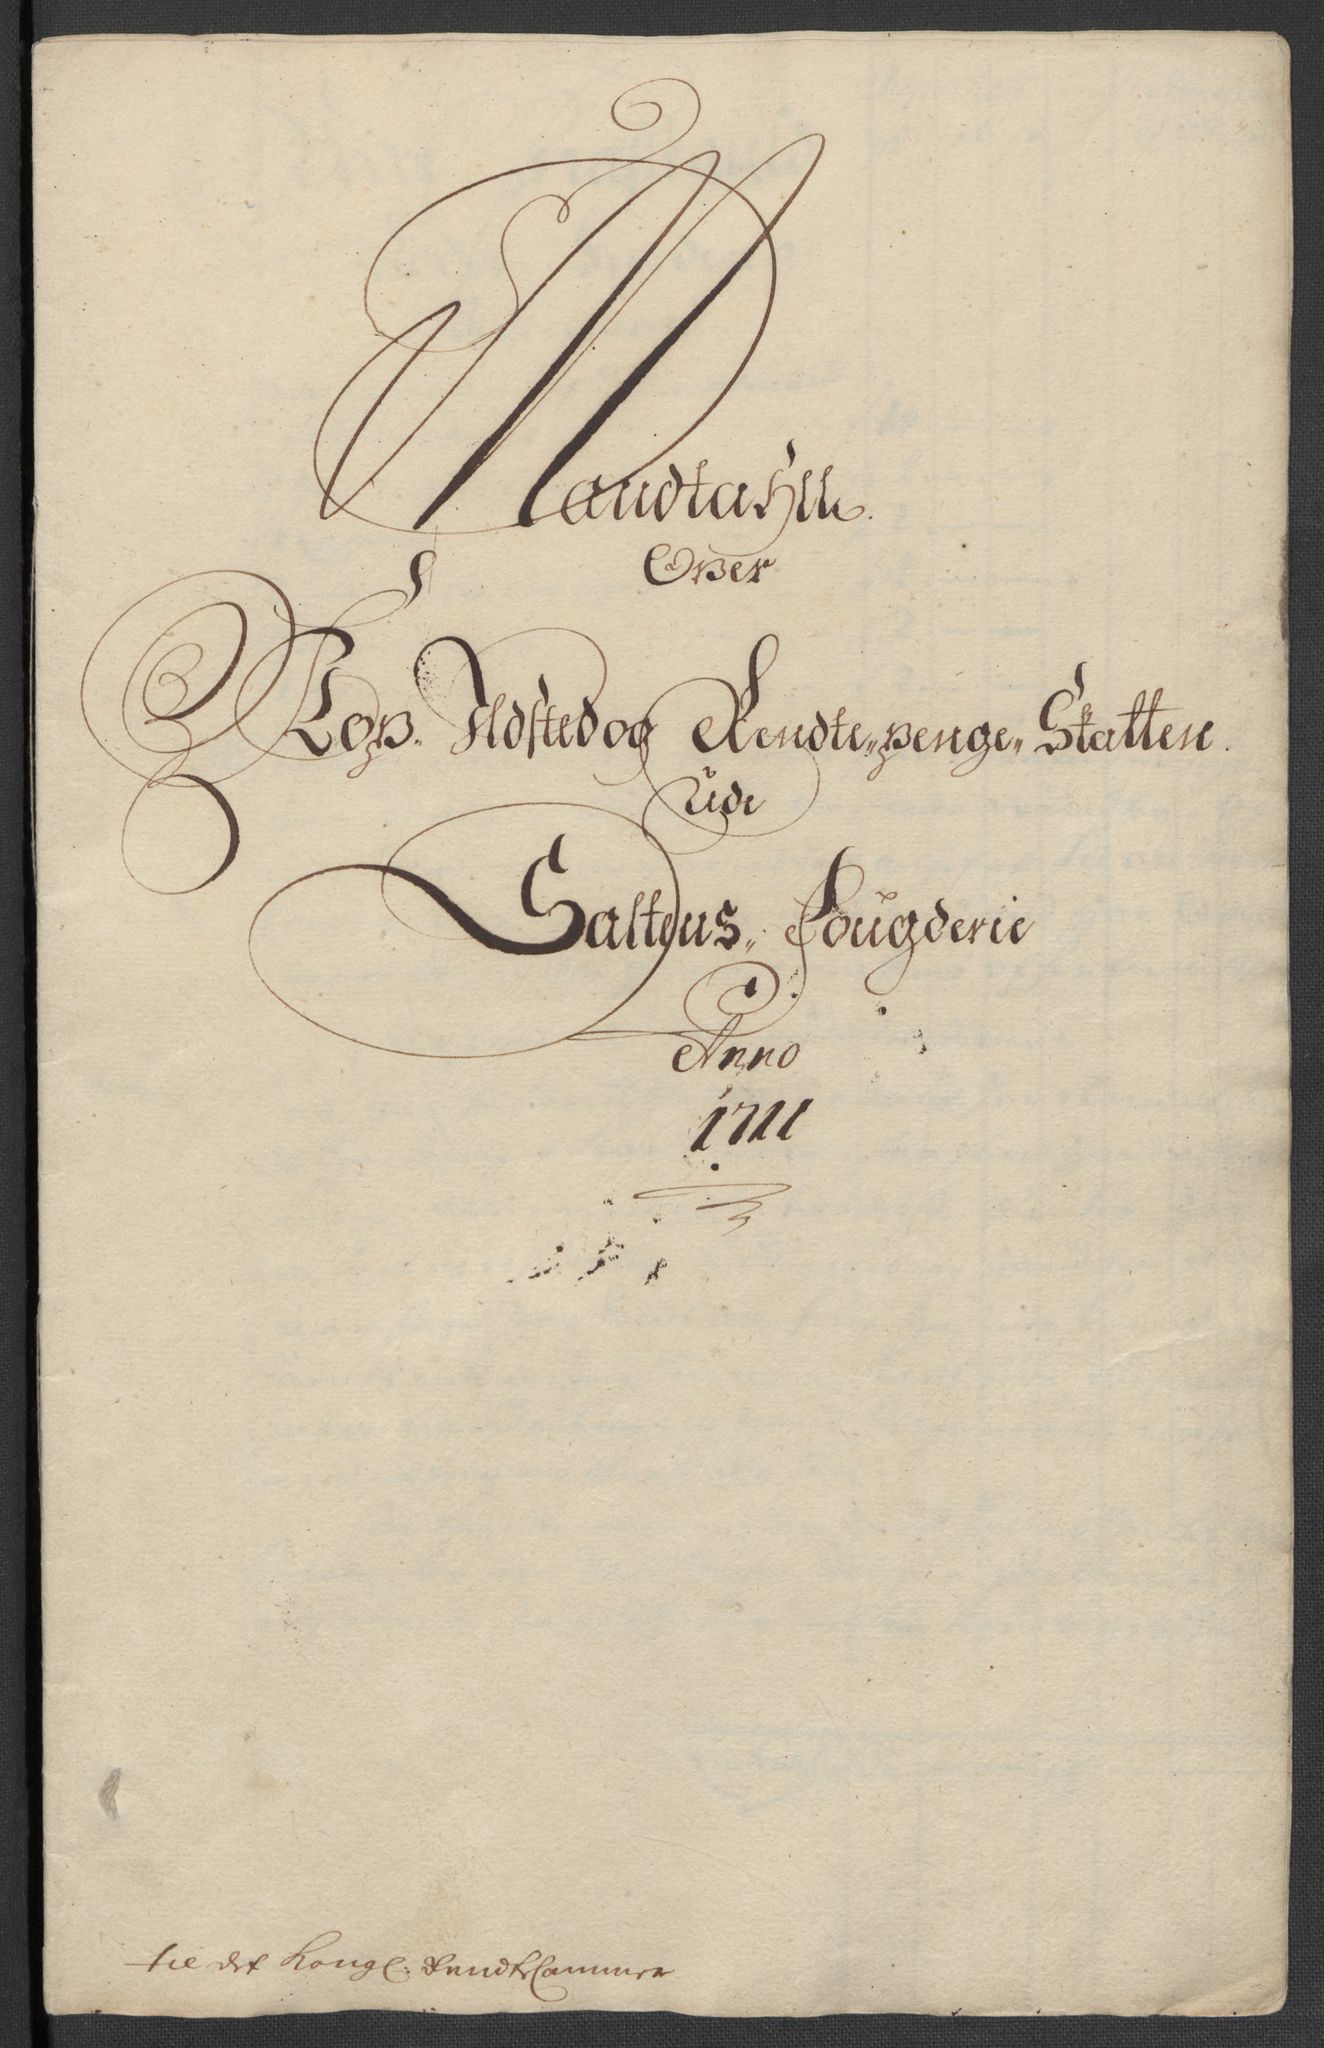 Mandtahll.
Over
Kop. Ildsted og Rendte„penge„ Skatten.
Udi
Saltens„ Fougderie
Anno
1711
til det Kongl. RendteCammer